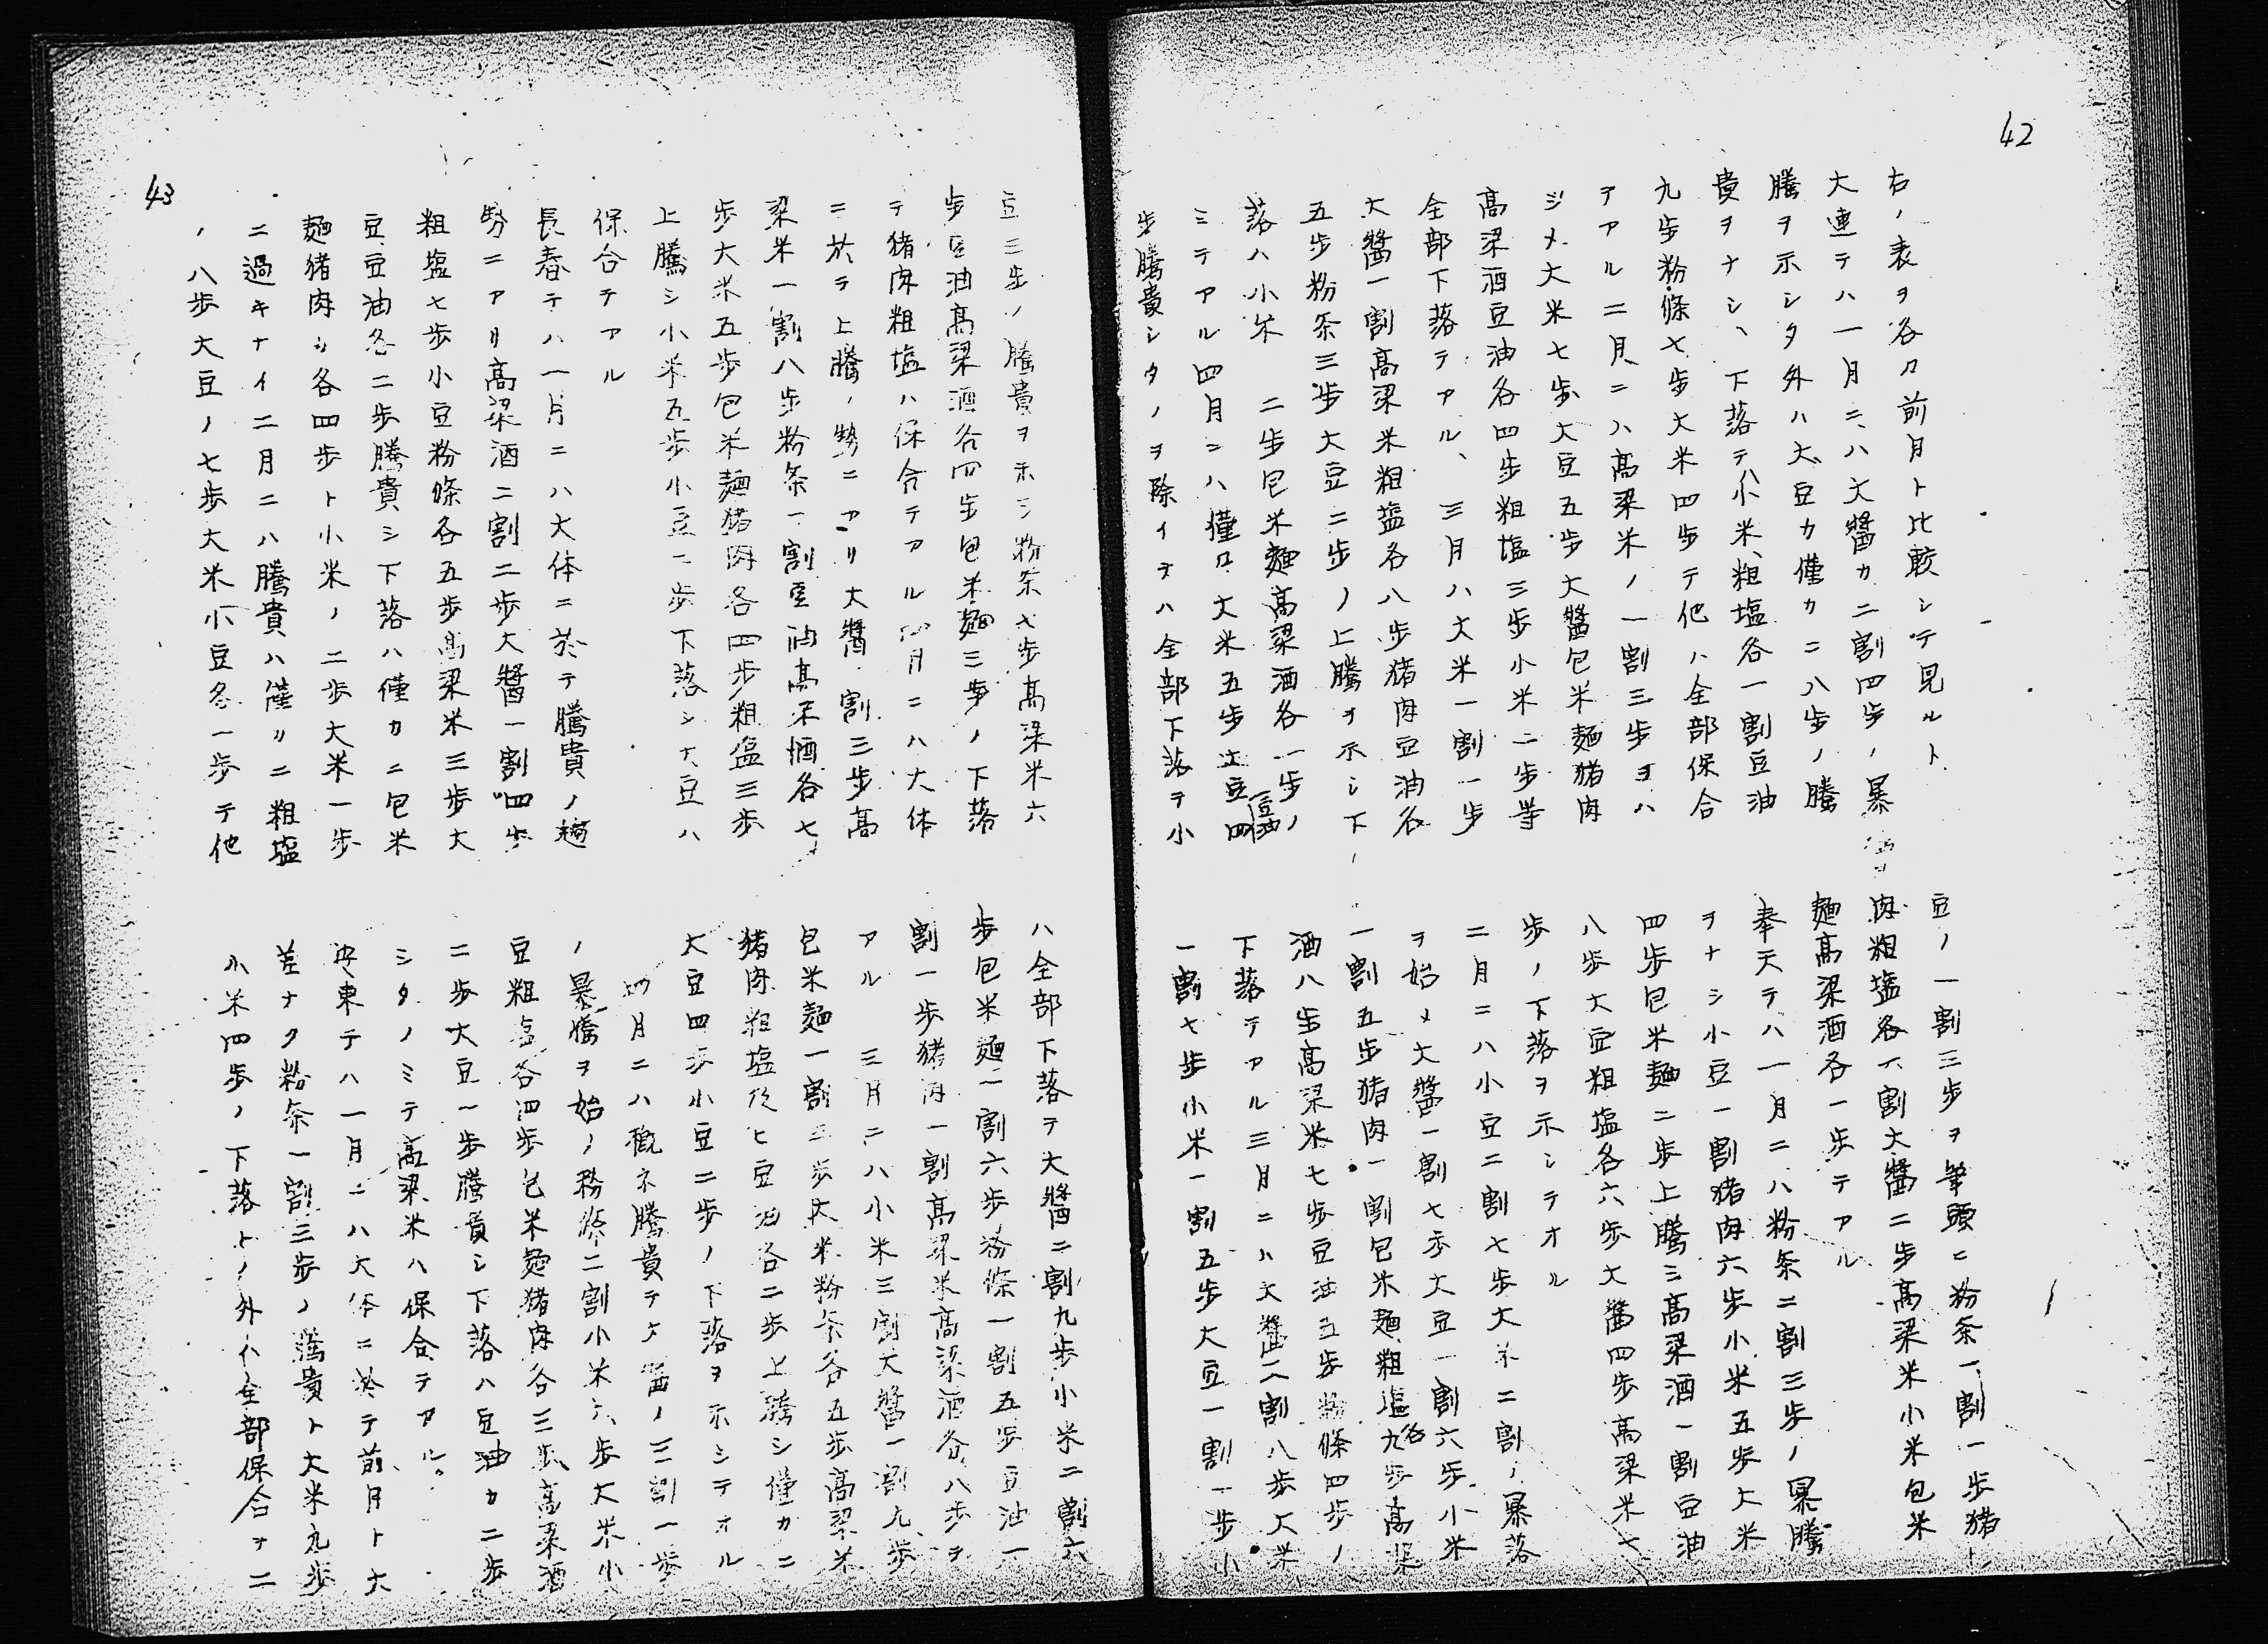 42
右ノ表ヲ各々前月ト比較シテ見ルト
大連テハ一月ニハ大醬カ二割四歩ノ暴
騰ヲ示シタ外ハ大豆カ僅カニ八歩ノ騰
貴ヲナシ、下落テハ小米、粗塩各一割豆油
九歩粉條七歩大米四歩テ他ハ全部保合
テアル二月ニハ高粱米ノ一割三歩ヲハ
ジメ大米七歩大豆五歩大醬包米麺猪肉
高粱酒豆油各四歩粗塩三歩小米二歩等
全部下落テアル、三月ハ大米一割一歩
大醬一割高粱米粗塩各八歩猪肉豆油各
五歩粉条三歩大豆二歩ノ上騰ヲ示シ下
落ハ小米 二歩包米麺高粱酒各一歩ノ
ミテアル四月ニハ僅カ大米五歩大豆豆油四
歩騰貴シタノヲ除イテハ全部下落テ小
豆ノ一割三歩ヲ筆頭ニ粉条一割一歩猪
肉粗塩各一割大醬二歩高粱米小米包米
麺高粱酒各一歩テアル
奉天テハ一月ニハ粉条二割三歩ノ暴騰
ヲナシ小豆一割猪肉六歩小米五歩大米
四歩包米麺二歩上騰シ高粱酒一割豆油
八歩大豆粗塩各六歩大醬四歩高粱米七
歩ノ下落ヲ示シテオル
二月ニハ小豆二割七歩大米二割ノ暴落
ヲ始メ大醬一割七歩大豆一割六歩小米
一割五歩猪肉一割包米麺粗塩各九歩高粱
酒八歩高粱米七歩豆油五歩粉條四歩ノ
下落テアル三月ニハ大醬二割八歩大米
一割七歩小米一割五歩大豆一割一歩小
豆三歩ノ騰貴ヲ示シ粉条七歩高粱米六
歩豆油高粱酒各四歩包米麺三歩ノ下落
テ猪肉粗塩ハ保合テアル四月ニハ大体
ニ於テ上騰ノ勢ニアリ大醬 割三歩高
粱米一割八歩粉条一割豆油高粱酒各七
歩大米五歩包米麺猪肉各四歩粗塩三歩
上騰シ小米五歩小豆二歩下落シ大豆ハ
保合テアル
長春テハ一月ニハ大体ニ於テ騰貴ノ趨
勢ニアリ高粱酒二割二歩大醬一割四歩
粗塩七歩小豆粉條各五歩高粱米三歩大
豆豆油各二歩騰貴シ下落ハ僅カニ包米
麺猪肉ノ各四歩ト小米ノ二歩大米一歩
ニ過キナイ二月ニハ騰貴ハ僅カニ粗塩
ノ八歩大豆ノ七歩大米小豆各一歩テ他
ハ全部下落ヲ大醬二割九歩小米二割六
歩包米麺二割六歩粉條一割五歩豆油一
割一歩猪肉一割高粱米高粱酒各八歩テ
アル 三月ニハ小米三割大醬一割九歩
包米麺一割二歩大米粉条各五歩高粱米
猪肉粗塩及ヒ豆油各二歩上騰シ僅カニ
大豆四歩小豆二歩ノ下落ヲ示シテオル
四月ニハ概ネ騰貴テ大醬ノ三割一歩
ノ暴騰ヲ始ノ粉條二割小米六歩大米小
豆粗塩各四歩包米麺猪肉各三歩高粱酒
二歩大豆一歩騰貴シ下落ハ豆油カ二歩
シタノミテ高粱米ハ保合テアル。
安東テハ一月ニハ大体ニ於テ前月ト大
差ナク粉条一割三歩ノ騰貴ト大米九歩
小米四歩ノ下落トノ外ハ全部保合ヲ二
43